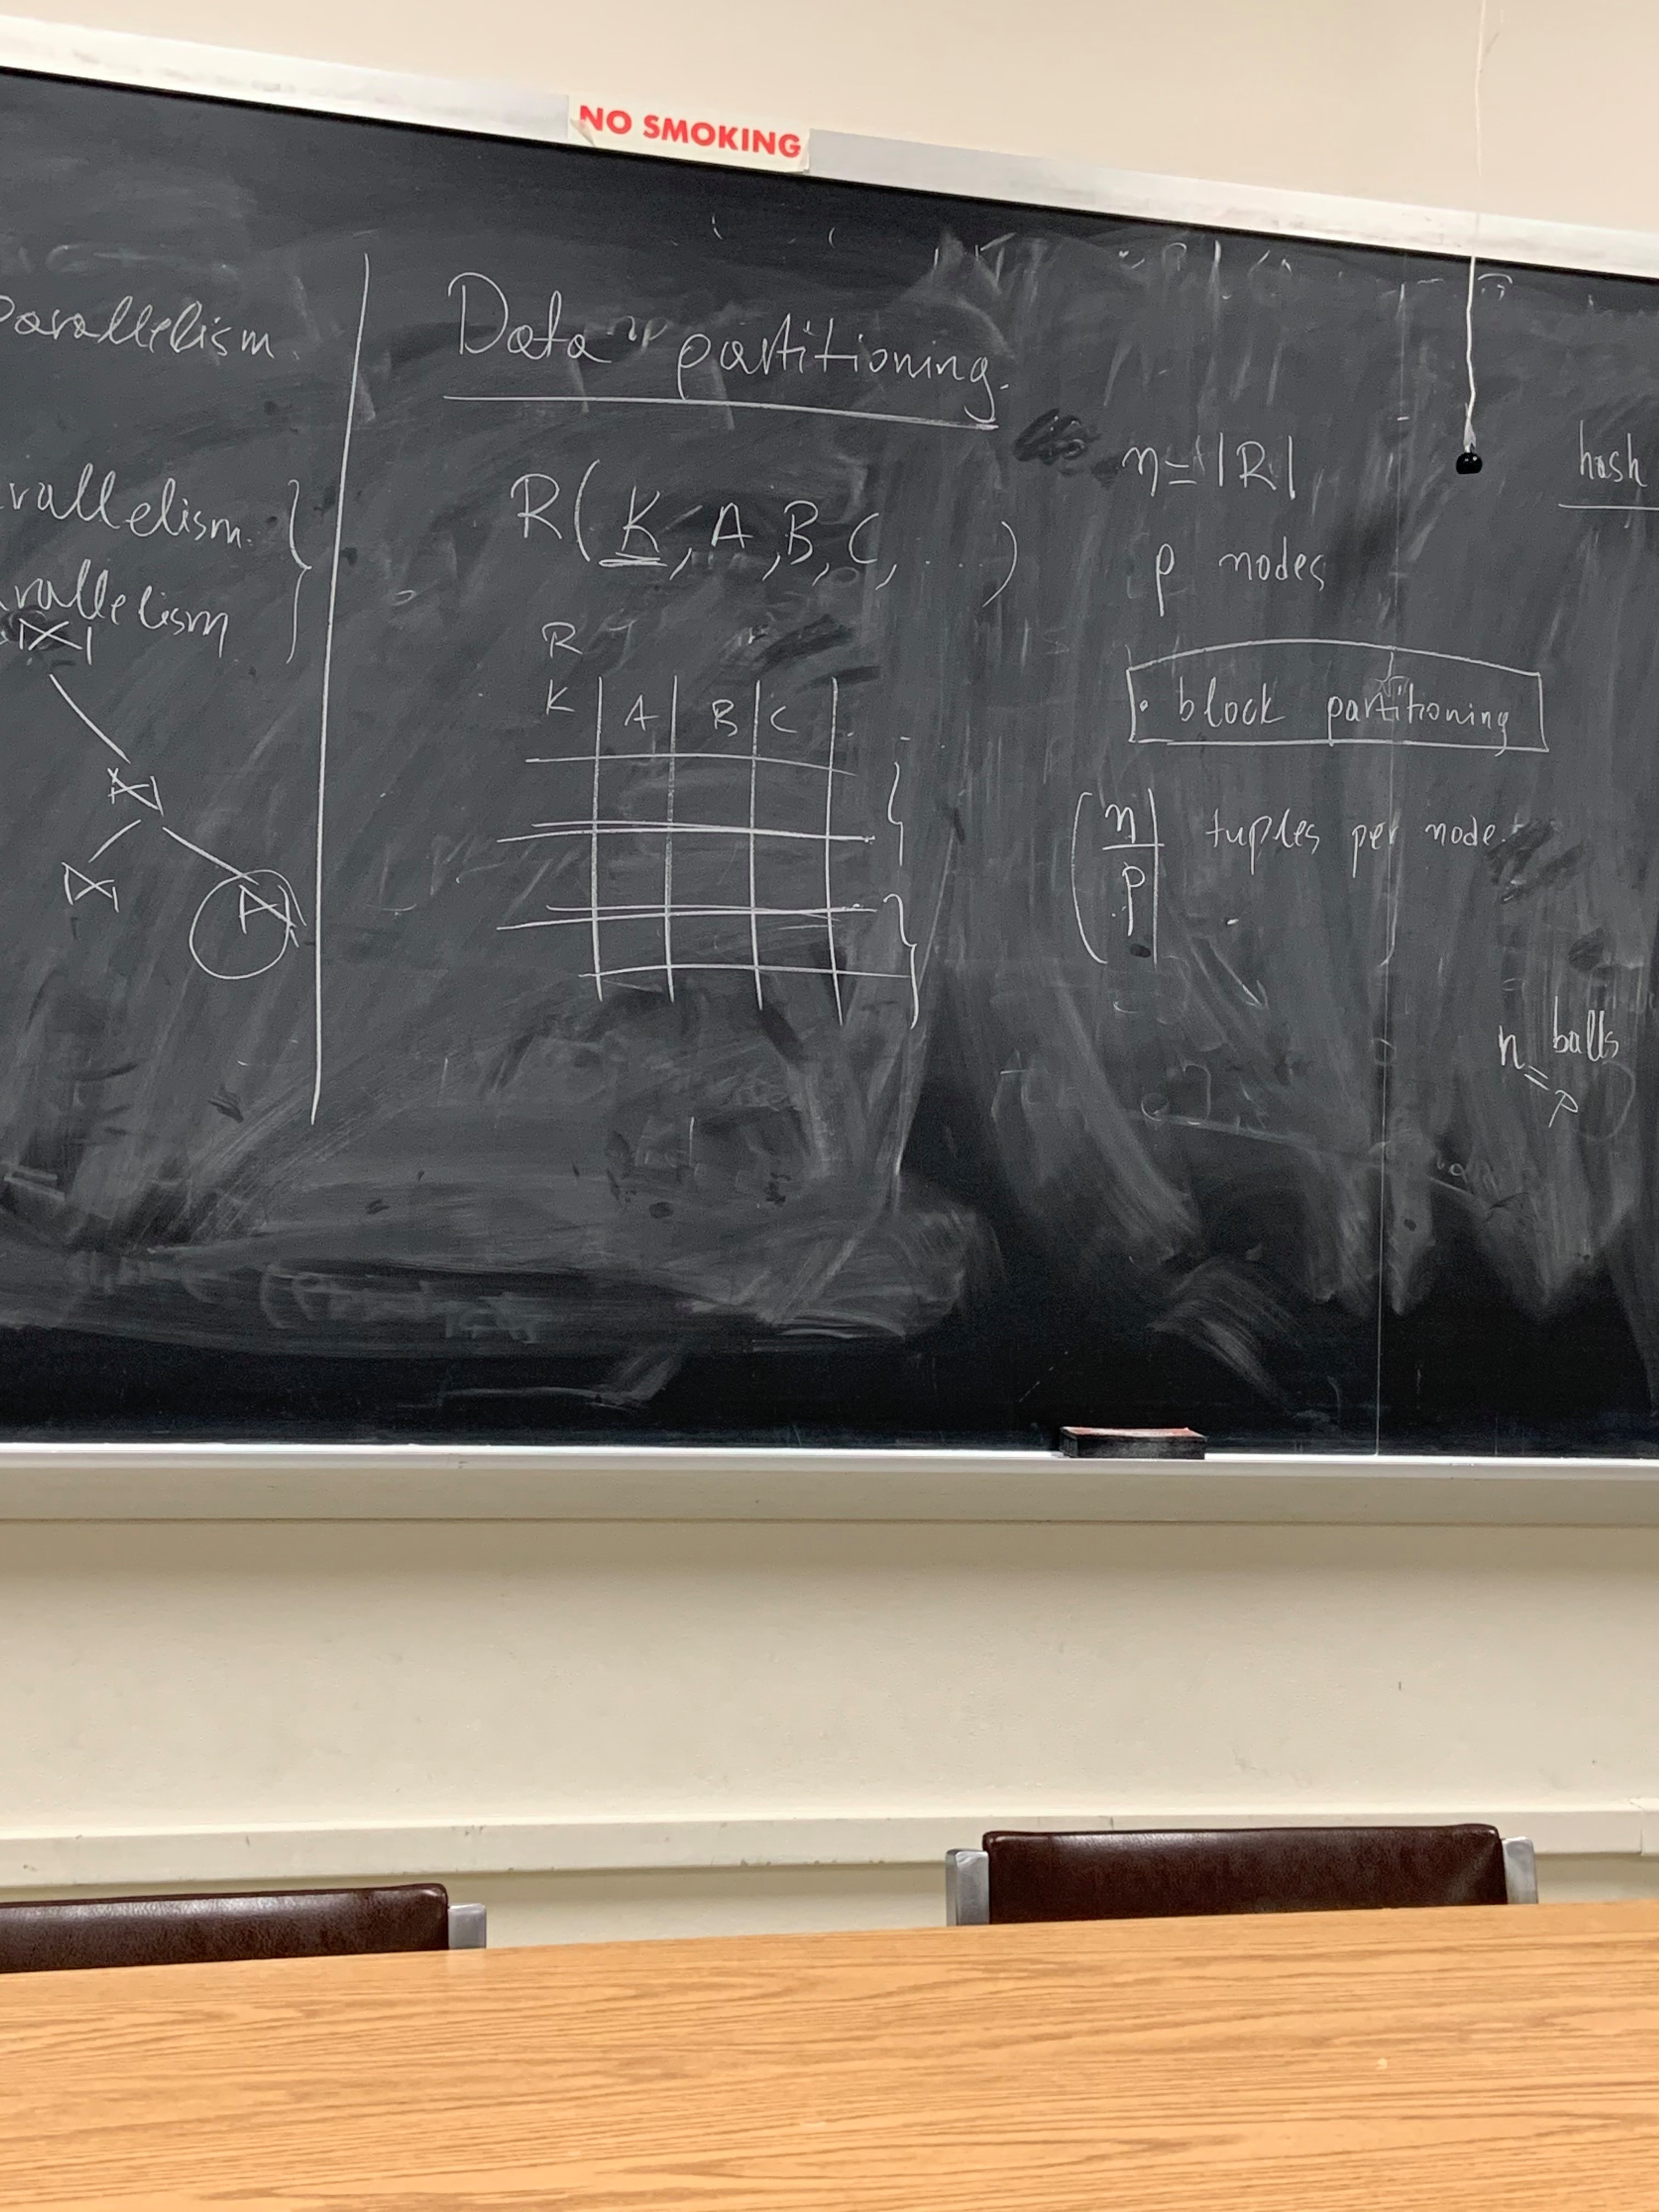 NO SMOKING
Parallelism.
Data partitioning.
R(K, A, B, C, ...)
R
K A B C
n = |R|
p nodes
· block partitioning
n
p
tuples per node.
hash
n balls
= p